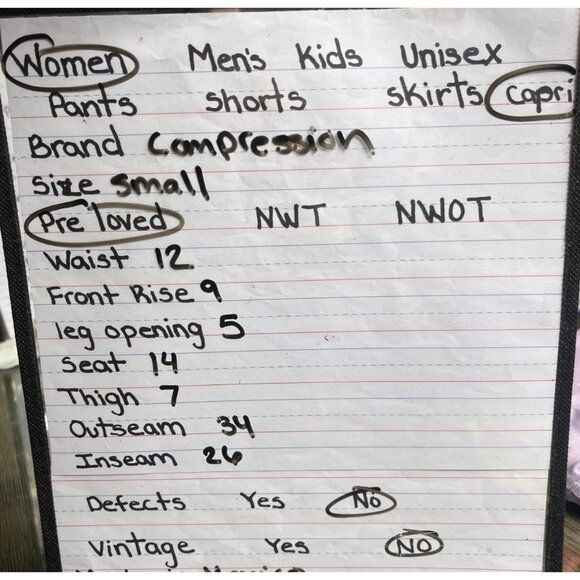 Women Men's Kids Unisex
Pants shorts skirts Capri
Brand Compression
Size small
Pre loved NWT NWOT
Waist 12
Front Rise 9
leg opening 5
Seat 14
Thigh 7
Outseam 34
Inseam 26
Defects Yes No
Vintage Yes NO